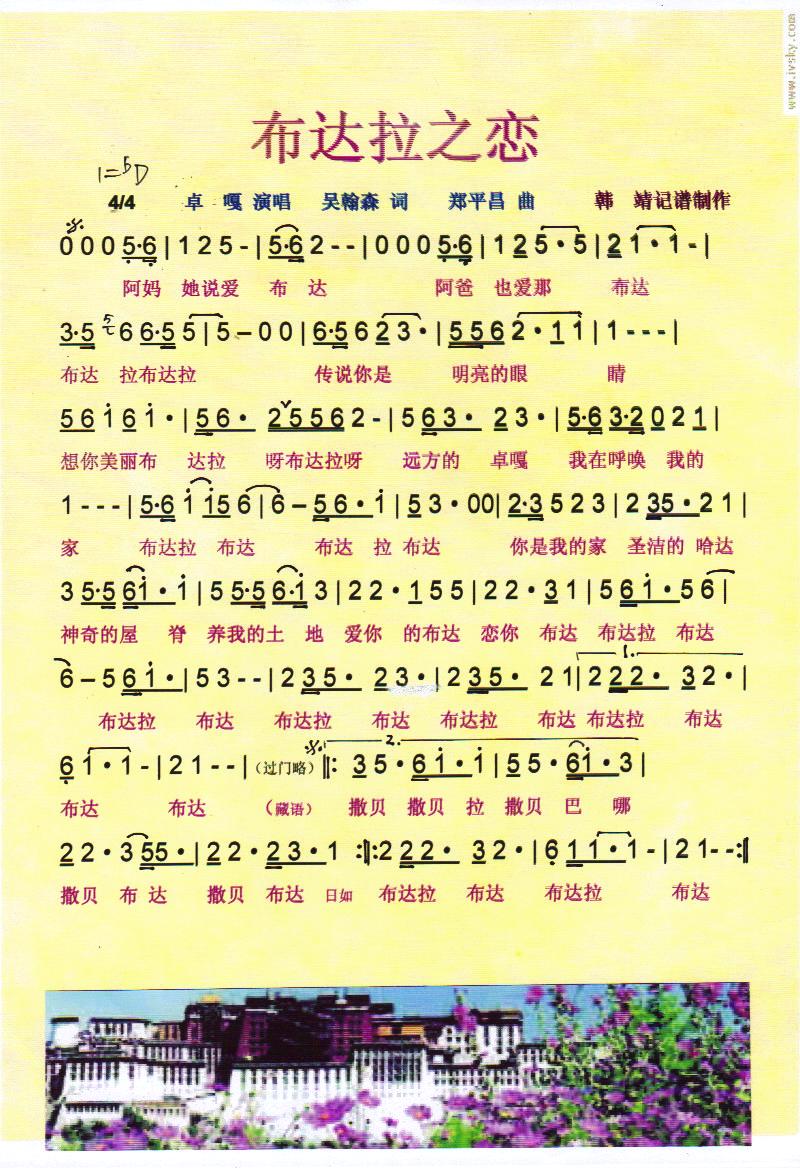 www.ivsky.com
布达拉之恋
1=♭D
4/4 卓 嘎 演唱 吴翰森 词 郑平昌 曲 韩 靖记谱制作
0 0 0 5·6 | 1 2 5 - | 5·6 2 - - | 0 0 0 5·6 | 1 2 5 · 5 | 2 1 · 1 - |
阿妈 她说爱 布 达 阿爸 也爱那 布达
3·5 6 6·5 5 | 5 – 0 0 | 6·5 6 2 3 · | 5 5 6 2 · 1 1 | 1 - - - |
布达 拉布达拉 传说你是 明亮的眼 睛
5 6 i 6 i · | 5 6 · 2 5 5 6 2 - | 5 6 3 · 2 3 · | 5·6 3·2 0 2 1 |
想你美丽布 达拉 呀布达拉呀 远方的 卓嘎 我在呼唤 我的
1 - - - | 5·6 i i5 6 | 6 – 5 6 · i | 5 3 · 0 0 | 2·3 5 2 3 | 2 3 5 · 2 1 |
家 布达拉 布达 布达 拉 布达 你是我的家 圣洁的 哈达
3 5·5 6 i · i | 5 5·5 6·i 3 | 2 2 · 1 5 5 | 2 2 · 3 1 | 5 6 i · 5 6 |
神奇的屋 脊 养我的土 地 爱你 的布达 恋你 布达 布达拉 布达
6 – 5 6 i · | 5 3 - - | 2 3 5 · 2 3 · | 2 3 5 · 2 1 | 1. 2 2 2 · 3 2 · |
布达拉 布达 布达拉 布达 布达拉 布达 布达拉 布达
6 i · 1 - | 2 1 - - |（过门略） ‖: 2. 3 5 · 6 i · i | 5 5 · 6 i · 3 |
布达 布达 （藏语） 撒贝 撒贝 拉 撒贝 巴 哪
2 2 · 3 5 5 · | 2 2 · 2 3 · 1 :‖: 2 2 2 · 3 2 · | 6 1 1 · 1 - | 2 1 - - :‖
撒贝 布 达 撒贝 布达 日如 布达拉 布达 布达拉 布达